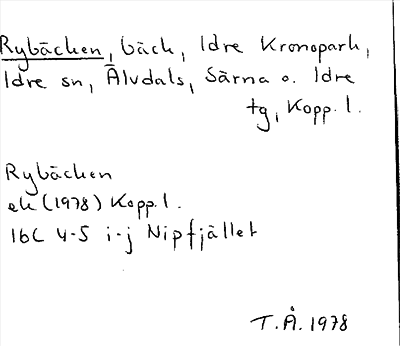 Rybäcken, bäck, Idre Kronopark,
Idre sn, Älvdals, Särna o. Idre
tg, Kopp. l.
Rybäcken
ek (1978) Kopp. l.
16C 4-5 i-j Nipfjället
T.Å. 1978